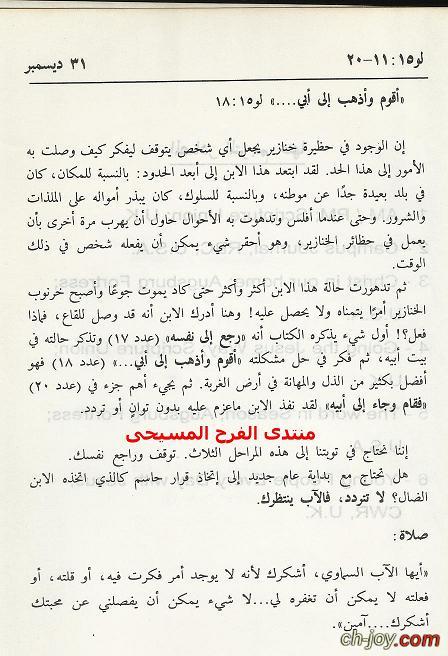 لو١٥:١١-٢٠ ٣١ ديسمبر
«أقوم وأذهب إلى أبي....» لو١٥:١٨
إن الوجود في حظيرة خنازير يجعل أي شخص يتوقف ليفكر كيف وصلت به
الأمور إلى هذا الحد. لقد ابتعد هذا الابن إلى أبعد الحدود: بالنسبة للمكان، كان
في بلد بعيدة جدًا عن موطنه، وبالنسبة للسلوك، كان يبذر أمواله على الملذات
والشرور. وحتى عندما أفلس وتدهورت به الأحوال حاول أن يهرب مرة أخرى بأن
يعمل في حظائر الخنازير، وهو أحقر شيء يمكن أن يفعله شخص في ذلك
الوقت.
ثم تدهورت حالة هذا الابن أكثر وأكثر حتى كاد يموت جوعًا وأصبح خرنوب
الخنازير أمرًا يتمناه ولا يحصل عليه! وهنا أدرك الابن أنه قد وصل للقاع، فماذا
فعل؟! أول شيء يذكره الكتاب أنه «رجع إلى نفسه» (عدد ١٧) وتذكر حالته في
بيت أبيه، ثم فكر في حل مشكلته «أقوم وأذهب إلى أبي...» (عدد ١٨) فهو
أفضل بكثير من الذل والمهانة في أرض الغربة. ثم يجيء أهم جزء في (عدد ٢٠)
«فقام وجاء إلى أبيه» لقد نفذ الابن ماعزم عليه بدون توانٍ أو تردد.
منتدى الفرح المسيحى
إننا نحتاج في توبتنا إلى هذه المراحل الثلاث. توقف وراجع نفسك.
هل تحتاج مع بداية عام جديد إلى إتخاذ قرار حاسم كالذي اتخذه الابن
الضال؟ لا تتردد، فالآب ينتظرك.
صلاة:
«أيها الآب السماوي، أشكرك لأنه لا يوجد أمر فكرت فيه، أو قلته، أو
فعلته لا يمكن أن تغفره لي...لا شيء يمكن أن يفصلني عن محبتك
أشكرك....آمين».
ch-joy.com